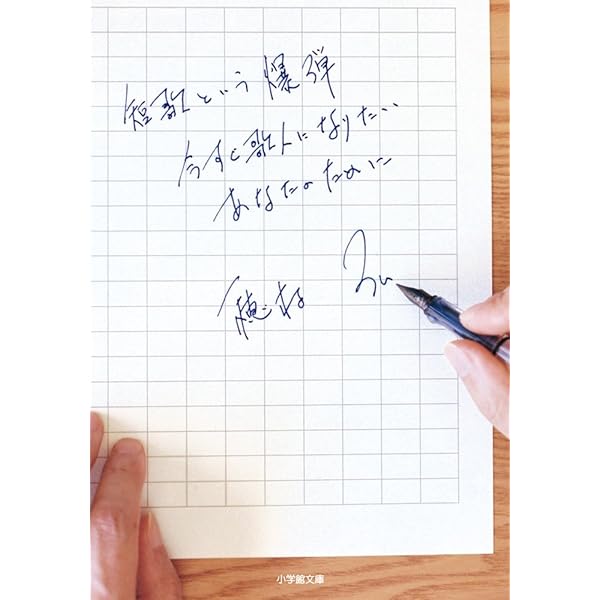 短歌という爆弾
今すぐ歌人になりたい
あなたのために
穂村 ひ
小学館文庫